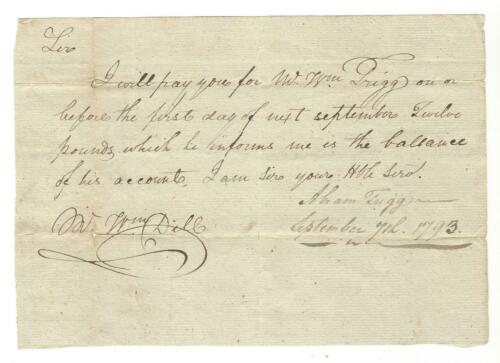 Sir
I will pay you for Mr. Wm Trigg on or
before the first day of next september Twelve
pounds, which he informs me is the ballance
of his account, I am sir your Hble Servt.
Abram Trigg
Mr. Wm Dill
September 7th. 1793.